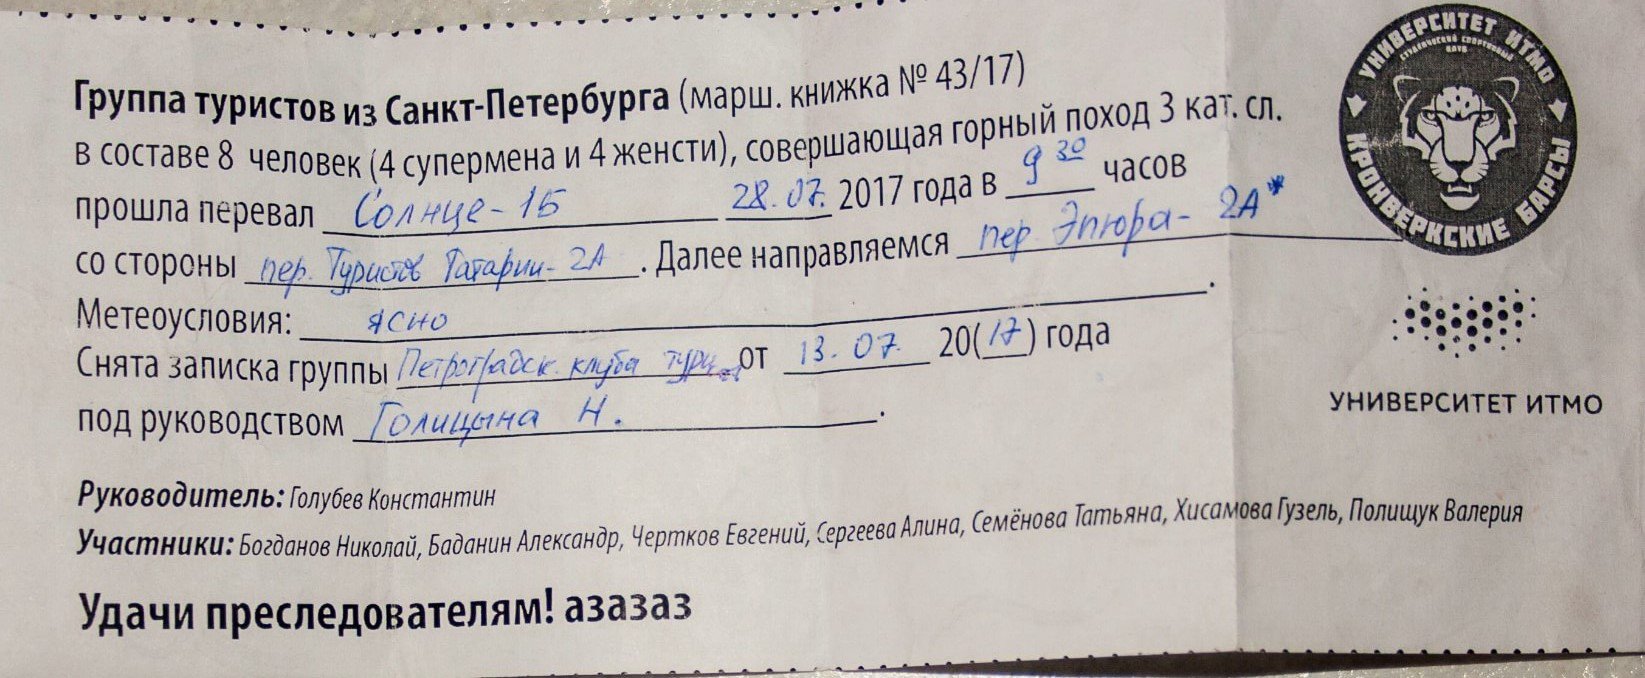 Группа туристов из Санкт-Петербурга (марш. книжка № 43/17)
в составе 8 человек (4 супермена и 4 женсти), совершающая горный поход 3 кат. сл.
прошла перевал Солнце-1Б 28.07. 2017 года в 9 30 часов
со стороны пер. Туристов Татарии-2А. Далее направляемся пер. Эпюра- 2А*
Метеоусловия: ясно.
Снята записка группы Петроградск. клуба от 13.07. 20(17) года
под руководством Голицына Н.
Руководитель: Голубев Константин
Участники: Богданов Николай, Баданин Александр, Чертков Евгений, Сергеева Алина, Семёнова Татьяна, Хисамова Гузель, Полищук Валерия
Удачи преследователям! азазаз
УНИВЕРСИТЕТ ИТМО
СТУДЕНЧЕСКИЙ СПОРТИВНЫЙ
КЛУБ
КРОНВЕРКСКИЕ БАРСЫ
УНИВЕРСИТЕТ ИТМО